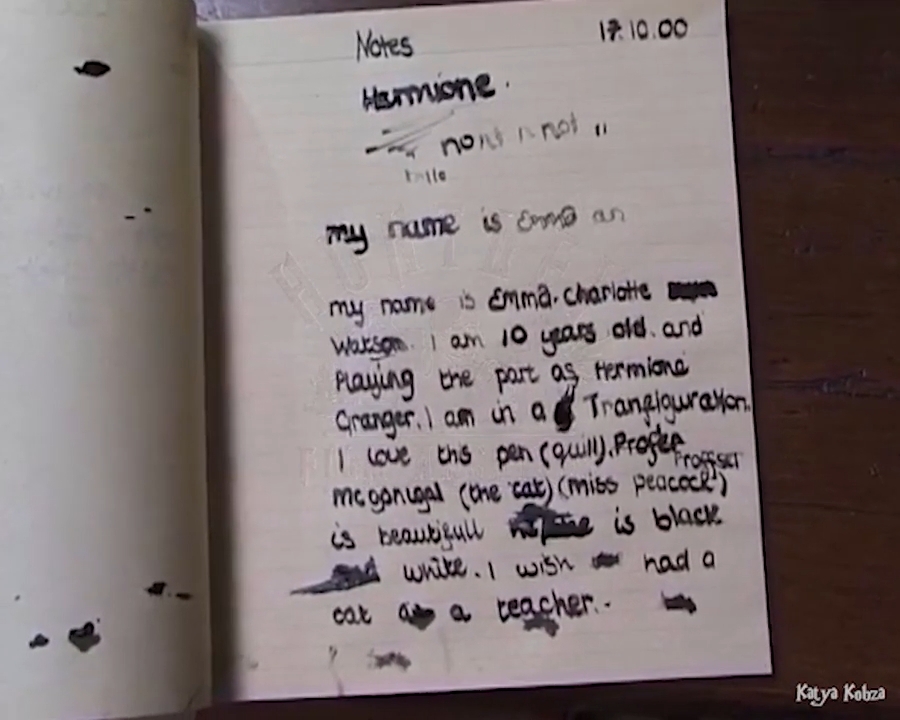 Notes 17.10.00
Hermione.
my name is Emma an
my name is Emma. Charlotte
Watson. I am 10 years old. and
Playing the part as Hermione
Granger. I am in a Tranzfiguration.
I love this pen (quill). Profer
Proffser
Mcgonigal (the cat) (miss peacock)
is beautifull is black
white. I wish had a
cat a teacher.
Katya Kobza